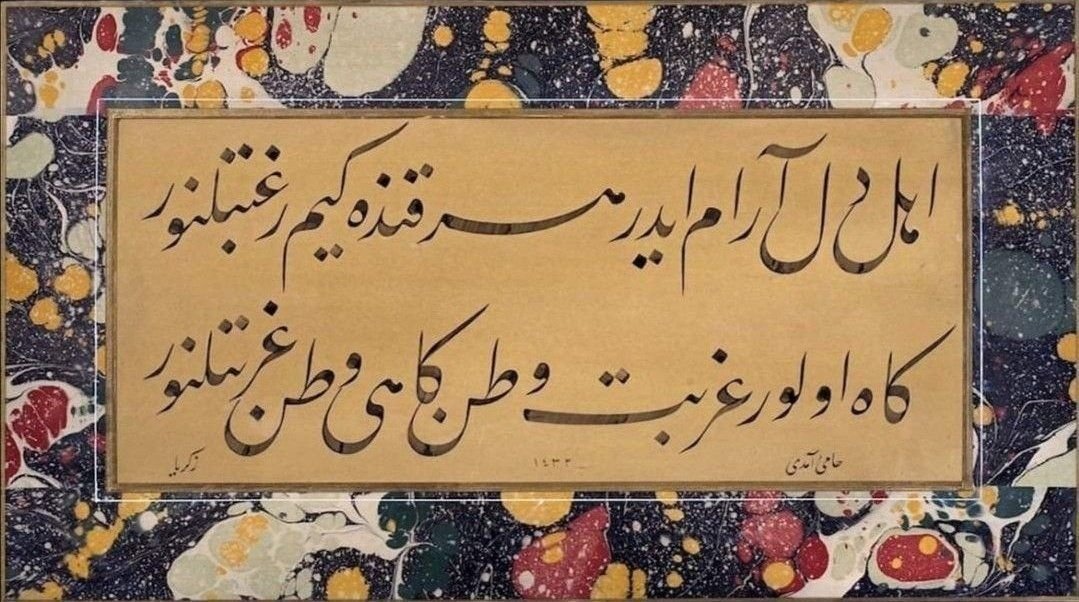 اهل دل آرام ایدر هر قنده کیم رغبتلنور
کاه اولور غربت وطن کاهی وطن غربتلنور
حامئ آمدی
١٤٣٢
زکریا